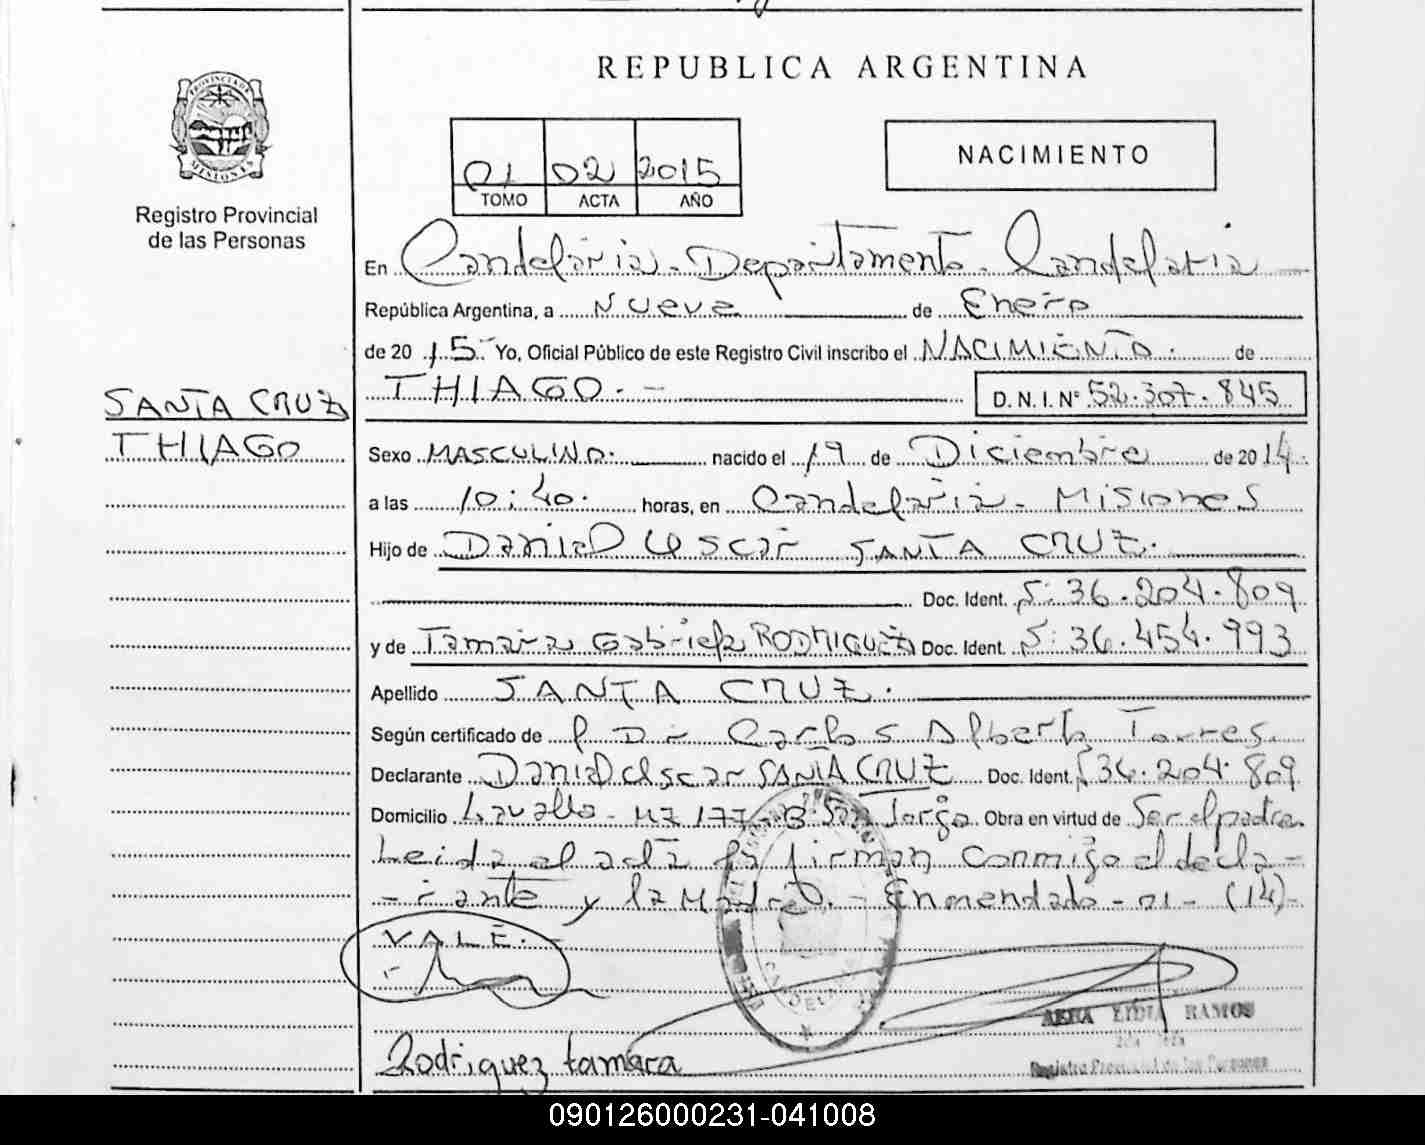 REPUBLICA ARGENTINA
PROVINCIA DE
MISIONES
Registro Provincial
de las Personas
01 02 2015
TOMO ACTA AÑO
NACIMIENTO
En Candelaria - Departamento - Candelaria
República Argentina, a Nueve de Enero
de 20 15 Yo, Oficial Público de este Registro Civil inscribo el NACIMIENTO. de
THIAGO. - D. N. I. Nº 52.307.845
SANTA CRUZ
THIAGO
Sexo MASCULINO. nacido el 19 de Diciembre de 20 14.
a las 10:40. horas, en Candelaria - Misiones
Hijo de Daniel Oscar SANTA CRUZ.
Doc. Ident. 36.204.809
y de Tamara Gabriela RODRIGUEZ Doc. Ident. 36.454.993
Apellido SANTA CRUZ.
Según certificado de Dr Carlos Alberto Torres.
Declarante Daniel Oscar SANTA CRUZ Doc. Ident. 36.204.809
Domicilio Lavalle - MZ 177 - B San Jorge Obra en virtud de Ser el padre
Leida el acta la firman conmigo el decla-
-rante y la Madre. - Enmendado - 01 - (14)-
VALE.
CANDELARIA
LIDIA RAMOS
Registro Provincial de las Personas
Rodriguez tamara
090126000231-041008